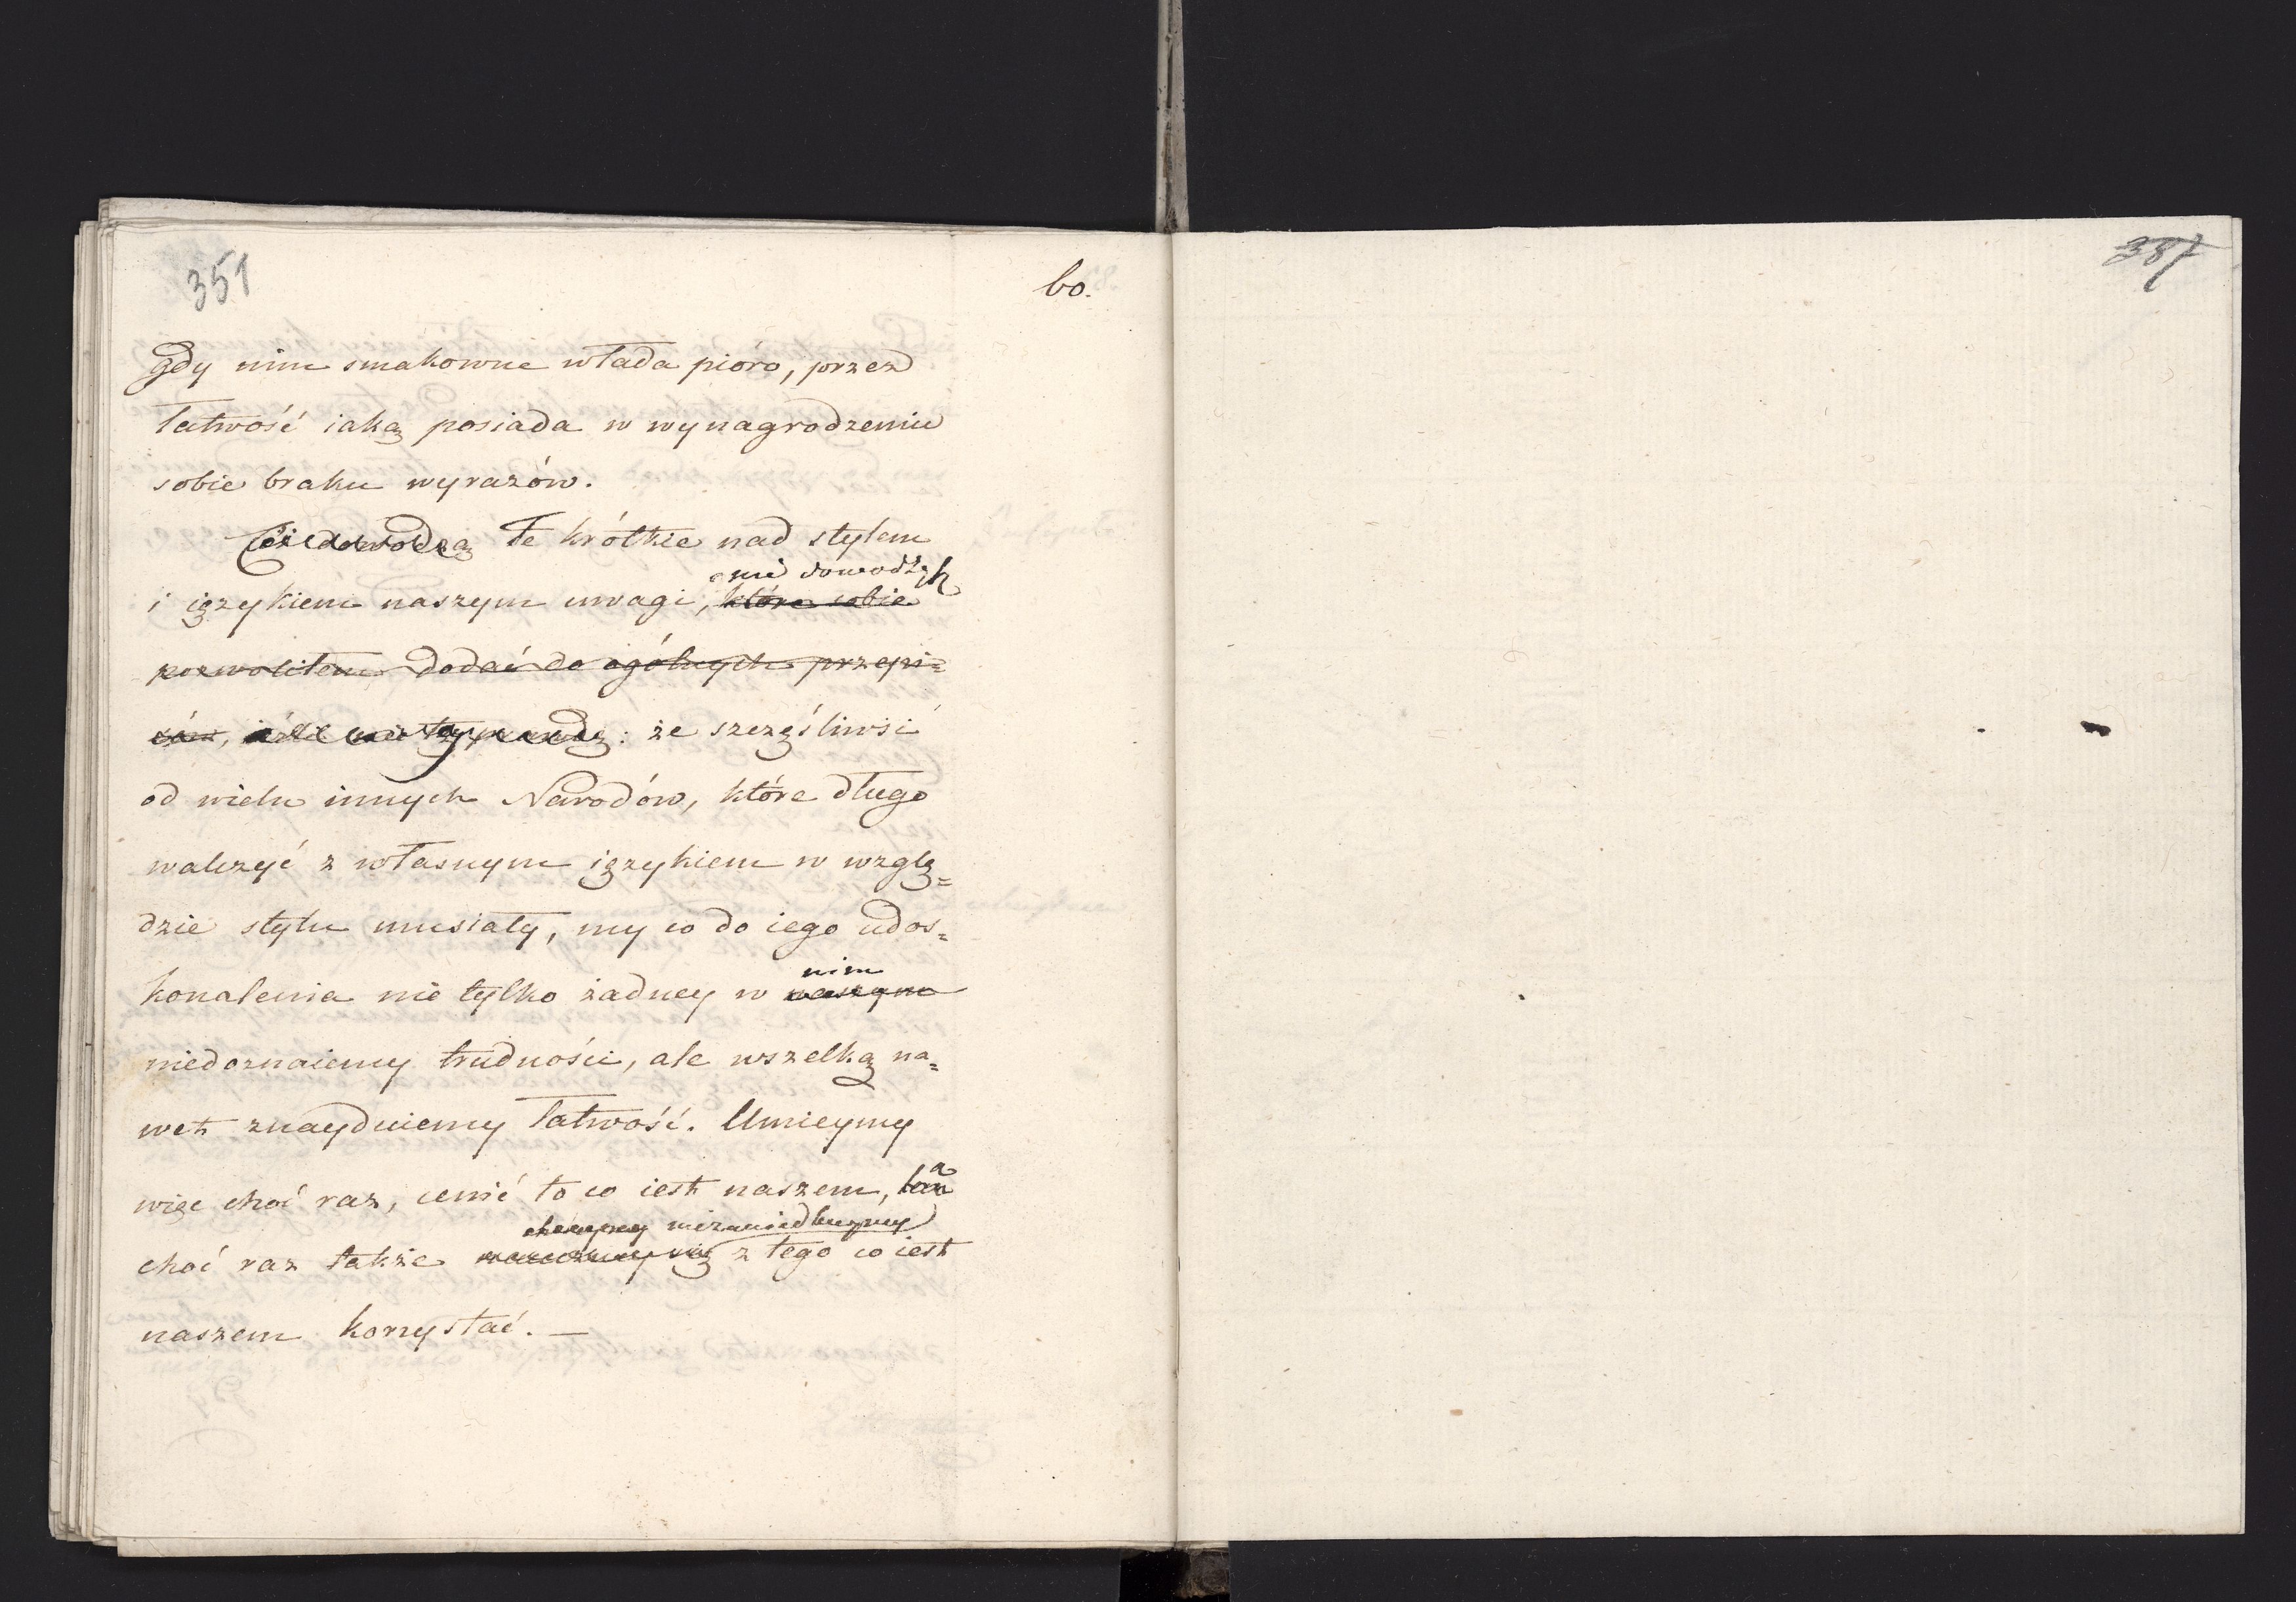 351
bo.
387
gdy nim smakowne włada pióro, przez
łatwość iaką posiada w wynagrodzeniu
sobie braku wyrazów.
Te krótkie nad stylem
nie dowodzą
i ięzykiem naszym uwagi, które sobie
pozwoliłem dodać do ogólnych przepi=
sów, : że szczęśliwsi
od wielu innych Narodów, które długo
walczyć z własnym ięzykiem w wzglę=
dzie stylu musiały, my co do iego udos=
nim
konalenia nie tylko żadney w naszym
niedoznaiemy trudności, ale wszelką na=
wet znayduiemy łatwość. Umieymy
a
więc choć raz, cenić to co iest naszem,
niezaniedbuymy
choć raz także z tego co iest
naszem korzystać. —